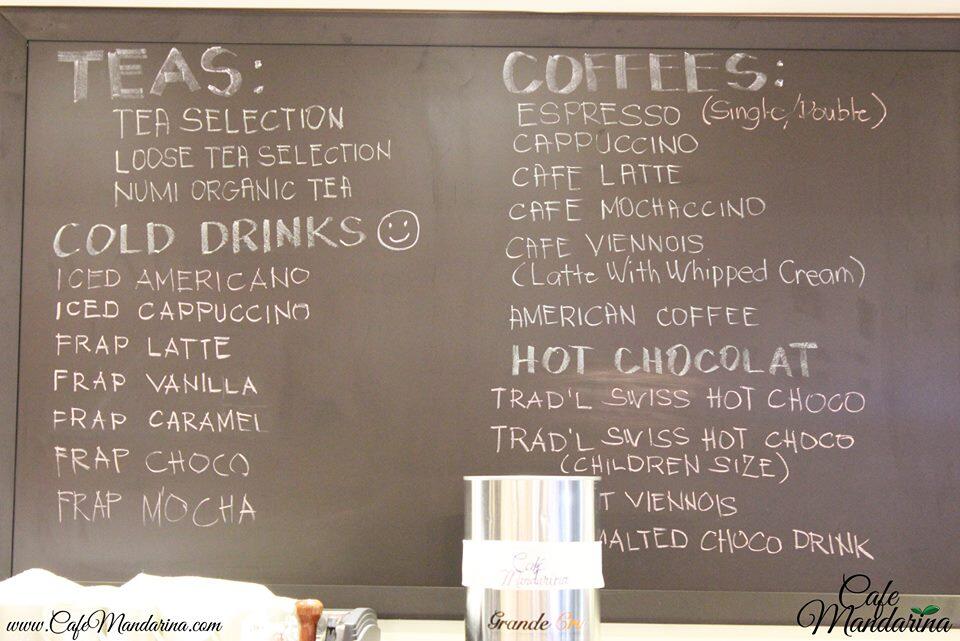 TEAS:
TEA SELECTION
LOOSE TEA SELECTION
NUMI ORGANIC TEA
COLD DRINKS
ICED AMERICANO
ICED CAPPUCCINO
FRAP LATTE
FRAP VANILLA
FRAP CARAMEL
FRAP CHOCO
FRAP MOCHA
COFFEES:
ESPRESSO (Single/Double)
CAPPUCCINO
CAFE LATTE
CAFE MOCHACCINO
CAFE VIENNOIS
(Latte With Whipped Cream)
AMERICAN COFFEE
HOT CHOCOLAT
TRAD'L SWISS HOT CHOCO
TRAD'L SWISS HOT CHOCO
(CHILDREN SIZE)
VIENNOIS
MALTED CHOCO DRINK
Café
Mandarina
Grande
www.CafeMandarina.com
Cafe
Mandarina